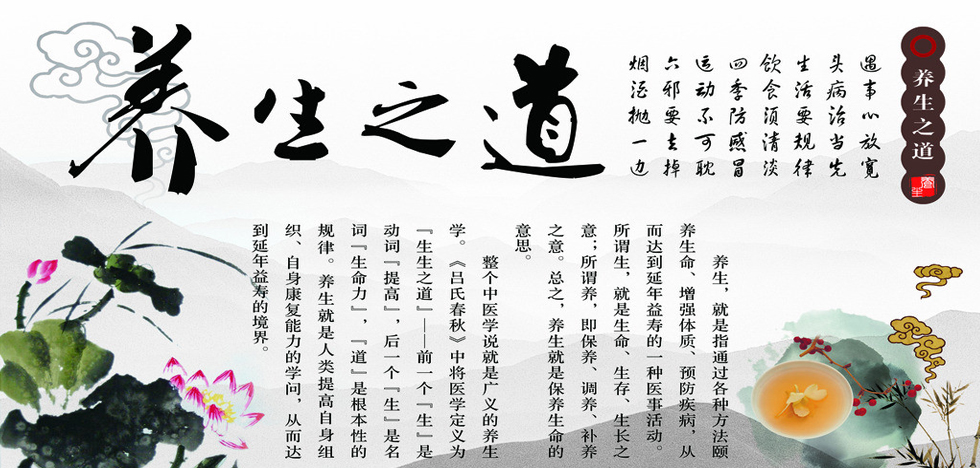 养生之道
养生
遇事心放宽
头病治当先
生活要规律
饮食须清淡
四季防感冒
运动不可耽
六邪要去掉
烟酒抛一边
养生之道
养生，就是指通过各种方法颐
养生命、增强体质、预防疾病，从
而达到延年益寿的一种医事活动。
所谓生，就是生命、生存、生长之
意；所谓养，即保养、调养、补养
之意。总之，养生就是保养生命的
意思。
整个中医学说就是广义的养生
学。《吕氏春秋》中将医学定义为
『生生之道』——前一个『生』是
动词『提高』，后一个『生』是名
词『生命力』，『道』是根本性的
规律。养生就是人类提高自身组
织、自身康复能力的学问，从而达
到延年益寿的境界。